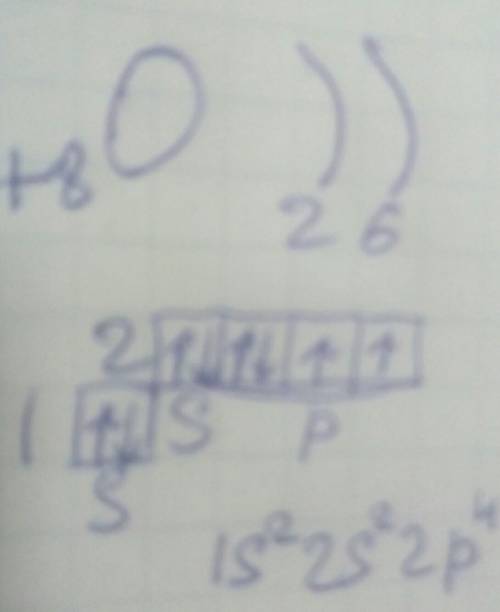 +8 O ) )
2 6
2 ↑↓ ↑↓ ↑ ↑
1 ↑↓ S P
S
1S²2S²2p⁴